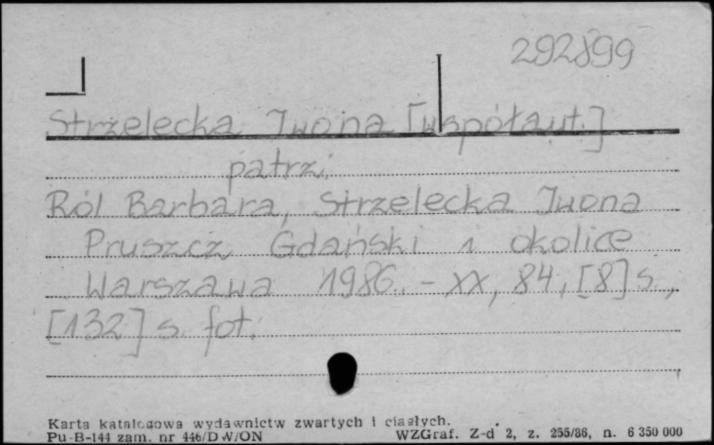 292899
Strzelecka Iwona [współaut.]
patrz:
Ról Barbara, Strzelecka Iwona
Pruszcz Gdański i okolice
Warszawa 1986. - XX, 84, [8] s.,
[132] s. fot.
Karta katalogowa wydawnictw zwartych i ciągłych.
Pu-B-144 zam. nr 446/DW/ON WZGraf. Z-d 2, z. 255/86, n. 6 350 000